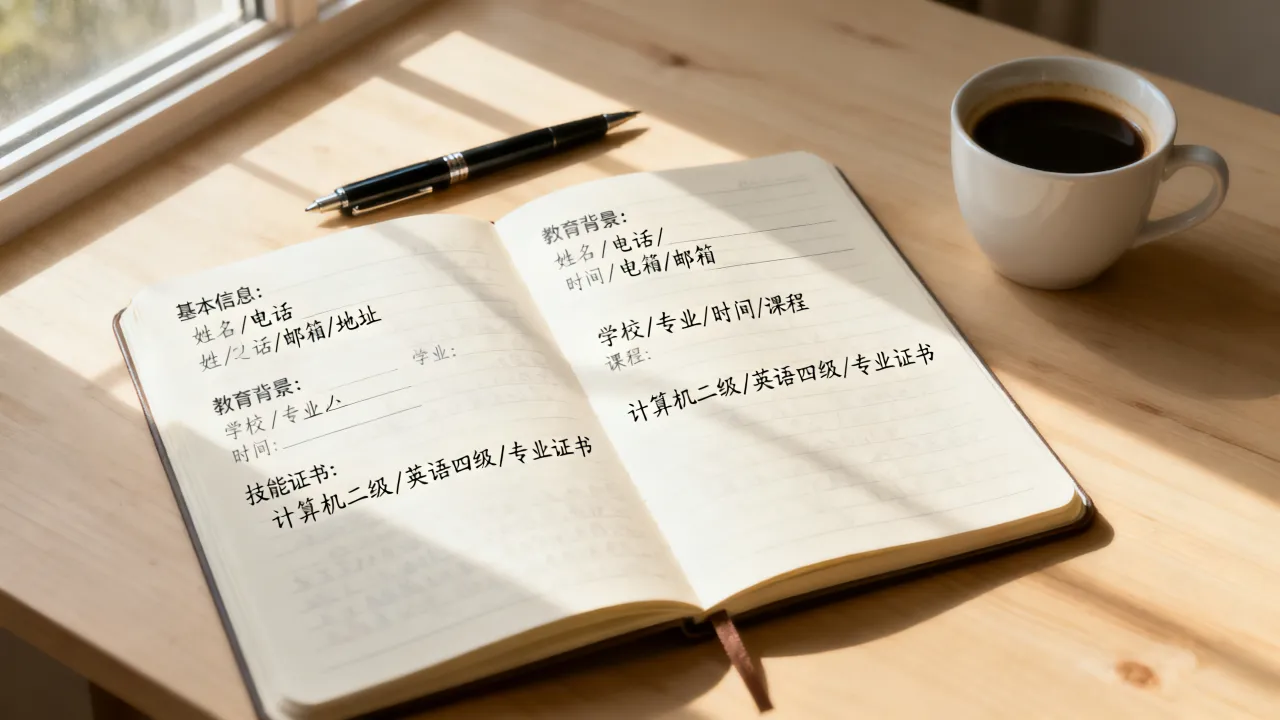 基本信息:
姓名/电话
姓/之话/邮箱/地址
教育背景: 学业:
学校/专业
时间:
技能证书:
计算机二级/英语四级/专业证书
教育背景:
姓名/电话/
时间/电箱/邮箱
学校/专业/时间/课程
课程:
计算机二级/英语四级/专业证书